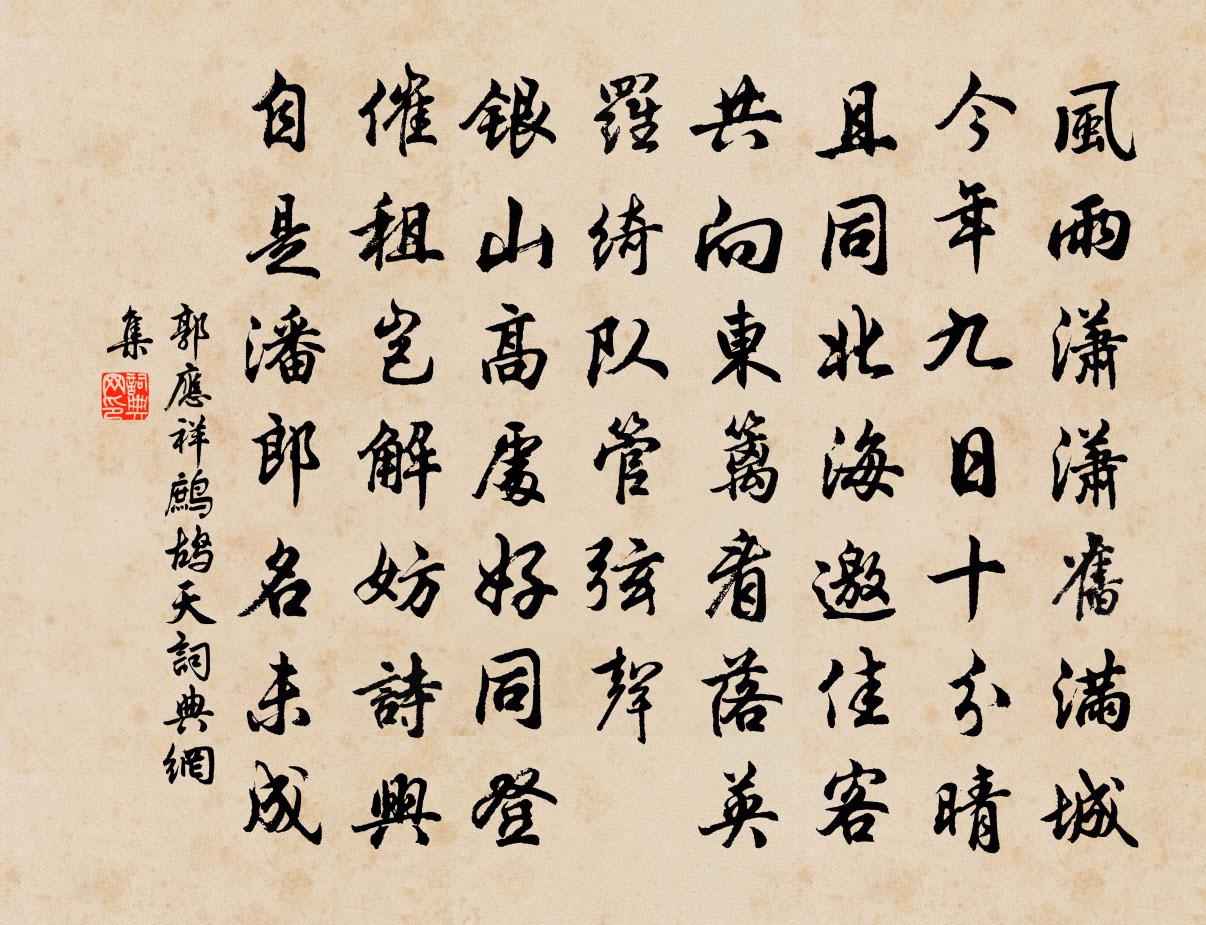 風雨瀟瀟舊滿城
今年九日十分晴
且同北海邀佳客
共向東籬看落英
羅綺队管弦聲
銀山高處好同登
催租岂解妨詩興
自是潘郎名未成
郭應祥鷓鴣天詞典網
集
詞典网印